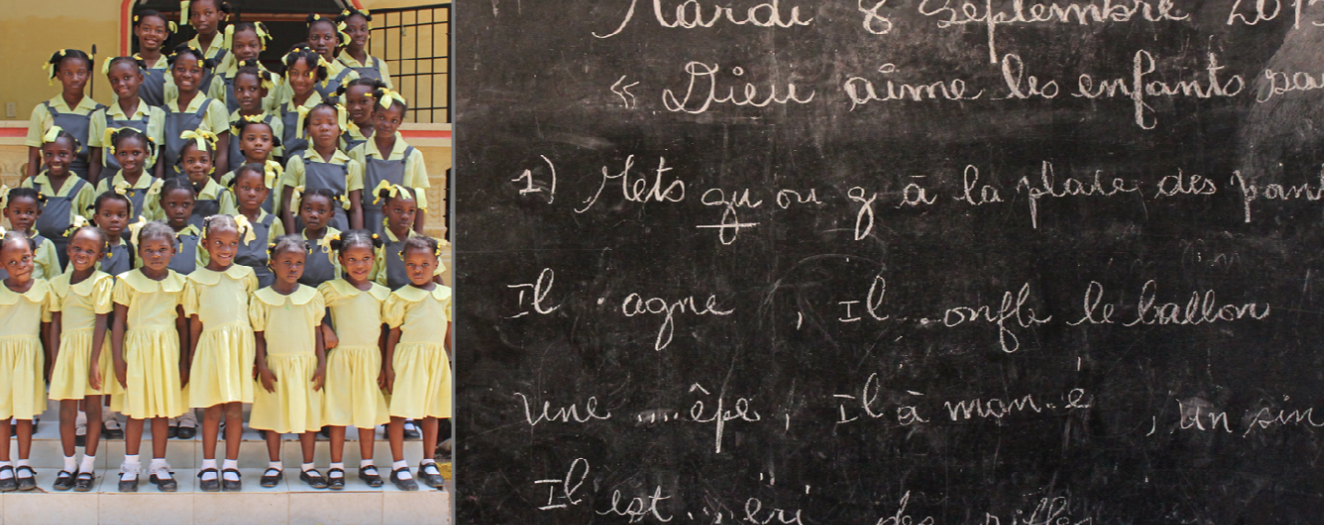 Mardi 8 Septembre 2015
« Dieu aime les enfants
1) Mets gu ou g à la place des
Il . agne , Il ..onfle le ballon
une ....êpe , Il à man..é , un sin
Il est ...éri des